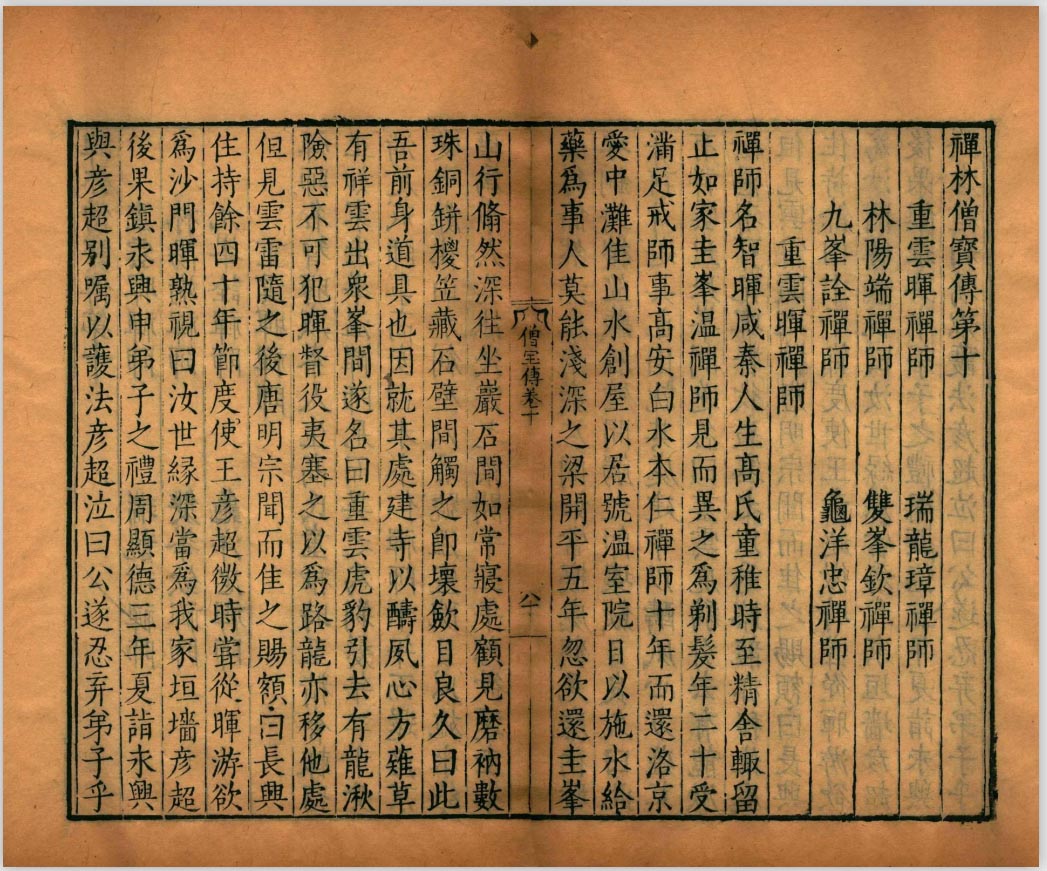 禪林僧寶傳第十
重雲暉禪師　瑞龍璋禪師
林陽端禪師　雙峯欽禪師
九峯詮禪師　龜洋忠禪師
重雲暉禪師
禪師名智暉咸秦人生高氏童稚時至精舍輙留
止如家圭峯温禪師見而異之爲剃髮年二十受
滿足戒師事高安白水本仁禪師十年而還洛京
愛中灘佳山水創屋以居號温室院日以施水給
藥爲事人莫能淺深之梁開平五年忽欲還圭峯
僧宝傳卷十
八十
山行翛然深往坐巖石間如常寢處顧見磨衲數
珠銅鉼椶笠藏石壁間觸之卽壞歛目良久曰此
吾前身道具也因就其處建寺以醻夙心方薙草
有祥雲出衆峯間遂名曰重雲虎豹引去有龍湫
險惡不可犯暉督役夷塞之以爲路龍亦移他處
但見雲雷隨之後唐明宗聞而佳之賜額曰長興
住持餘四十年節度使王彦超微時甞從暉游欲
爲沙門暉熟視曰汝世緣深當爲我家垣墻彦超
後果鎮永興申弟子之禮周顯德三年夏詣永興
與彦超别囑以護法彦超泣曰公遂忍弃弟子乎